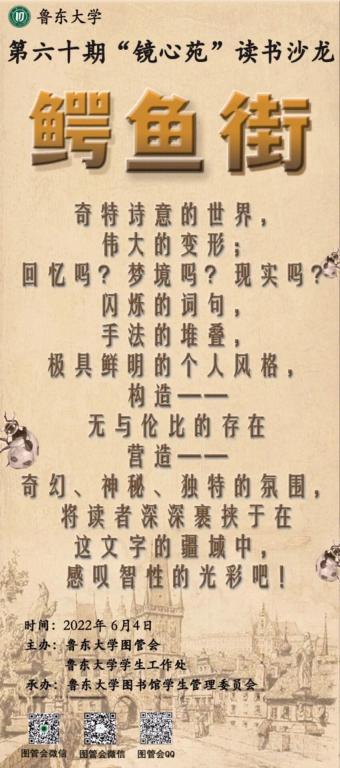 鲁东大学
第六十期“镜心苑”读书沙龙
鳄鱼街
奇特诗意的世界，
伟大的变形；
回忆吗？梦境吗？现实吗？
闪烁的词句，
手法的堆叠，
极具鲜明的个人风格，
构造——
无与伦比的存在
营造——
奇幻、神秘、独特的氛围，
将读者深深裹挟于在
这文字的疆域中，
感叹智性的光彩吧！
时间：2022年6月4日
主办：鲁东大学图管会
鲁东大学学生工作处
承办：鲁东大学图书馆学生管理委员会
图管会微信 图管会微信 图管会QQ